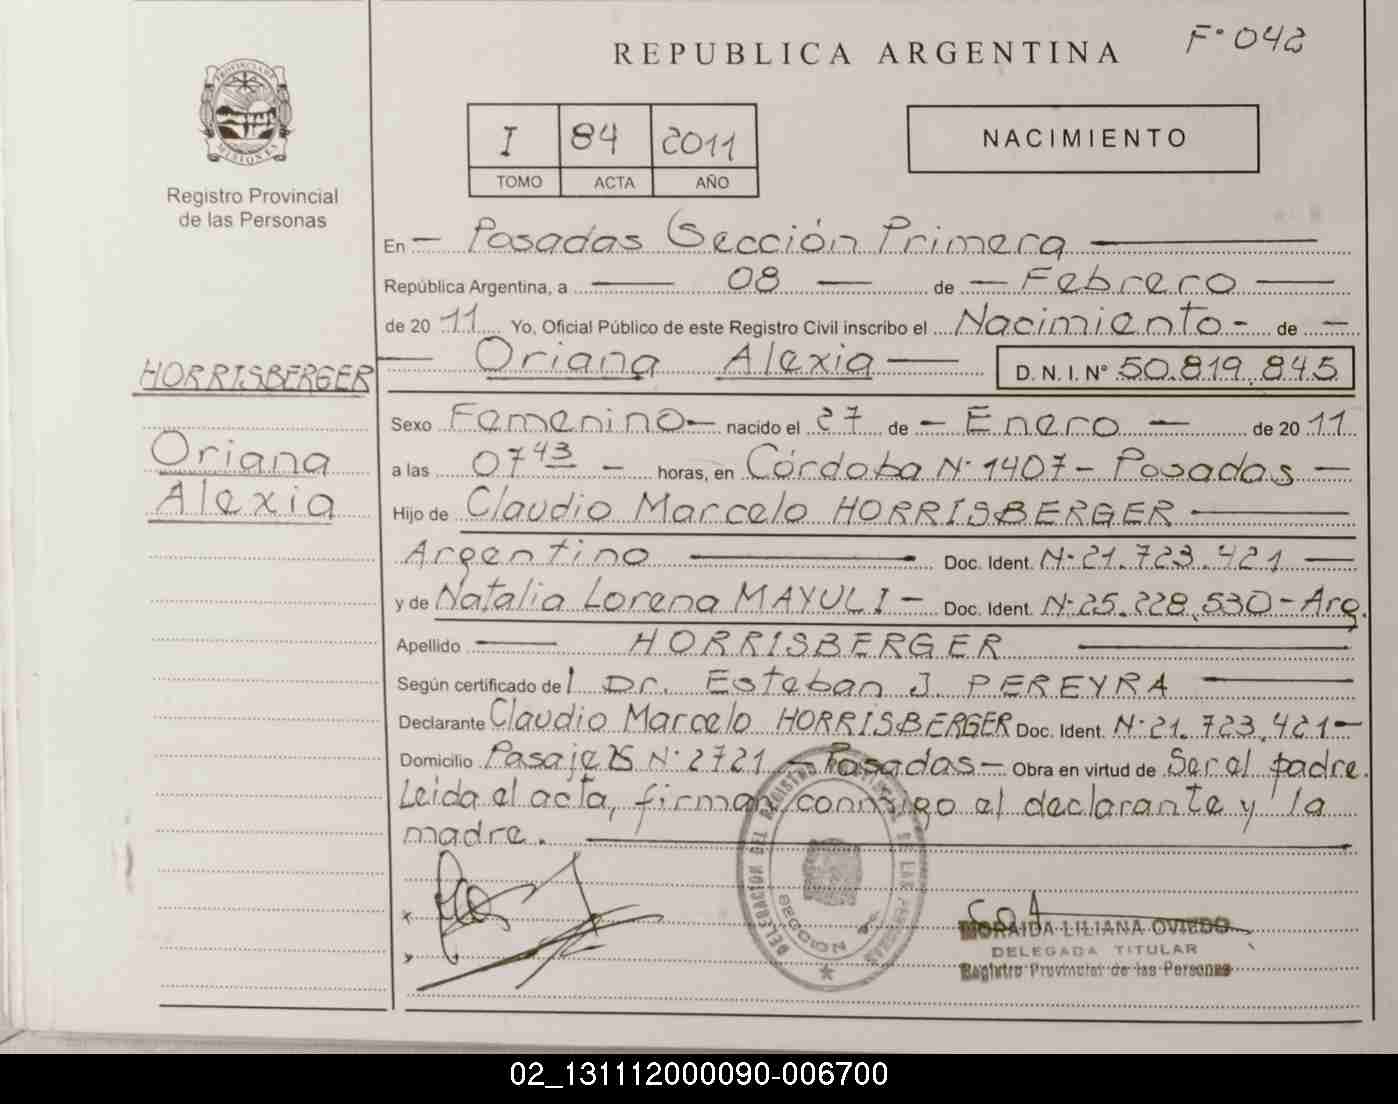 F° 042
REPUBLICA ARGENTINA
PROVINCIA DE
MISIONES
Registro Provincial
de las Personas
I 84 2011
TOMO ACTA AÑO
NACIMIENTO
En — Posadas Sección Primera —
República Argentina, a — 08 — de — Febrero —
de 20 11 Yo, Oficial Público de este Registro Civil inscribo el Nacimiento - de —
— Oriana Alexia — D. N. I. N° 50.819.845
HORRISBERGER
Oriana
Alexia
Sexo Femenino — nacido el 27 de — Enero — de 20 11
a las 07 43 — horas, en Córdoba N° 1407 - Posadas —
Hijo de Claudio Marcelo HORRISBERGER —
Argentino — Doc. Ident. N° 21.723.421 —
y de Natalia Lorena MAYULI — Doc. Ident. N° 25.228.530 - Arg.
Apellido — HORRISBERGER —
Según certificado del Dr. Esteban J. PEREYRA —
Declarante Claudio Marcelo HORRISBERGER Doc. Ident. N° 21.723.421 —
Domicilio Pasaje N° 2721 — Posadas — Obra en virtud de Ser el padre.
Leida el acta, firman conmigo el declarante y la
madre. —
DELEGACION DEL REGISTRO DE LAS PERSONAS
SECCION
MORAIDA LILIANA OVIEDO
DELEGADA TITULAR
Registro Provincial de las Personas
02_131112000090-006700